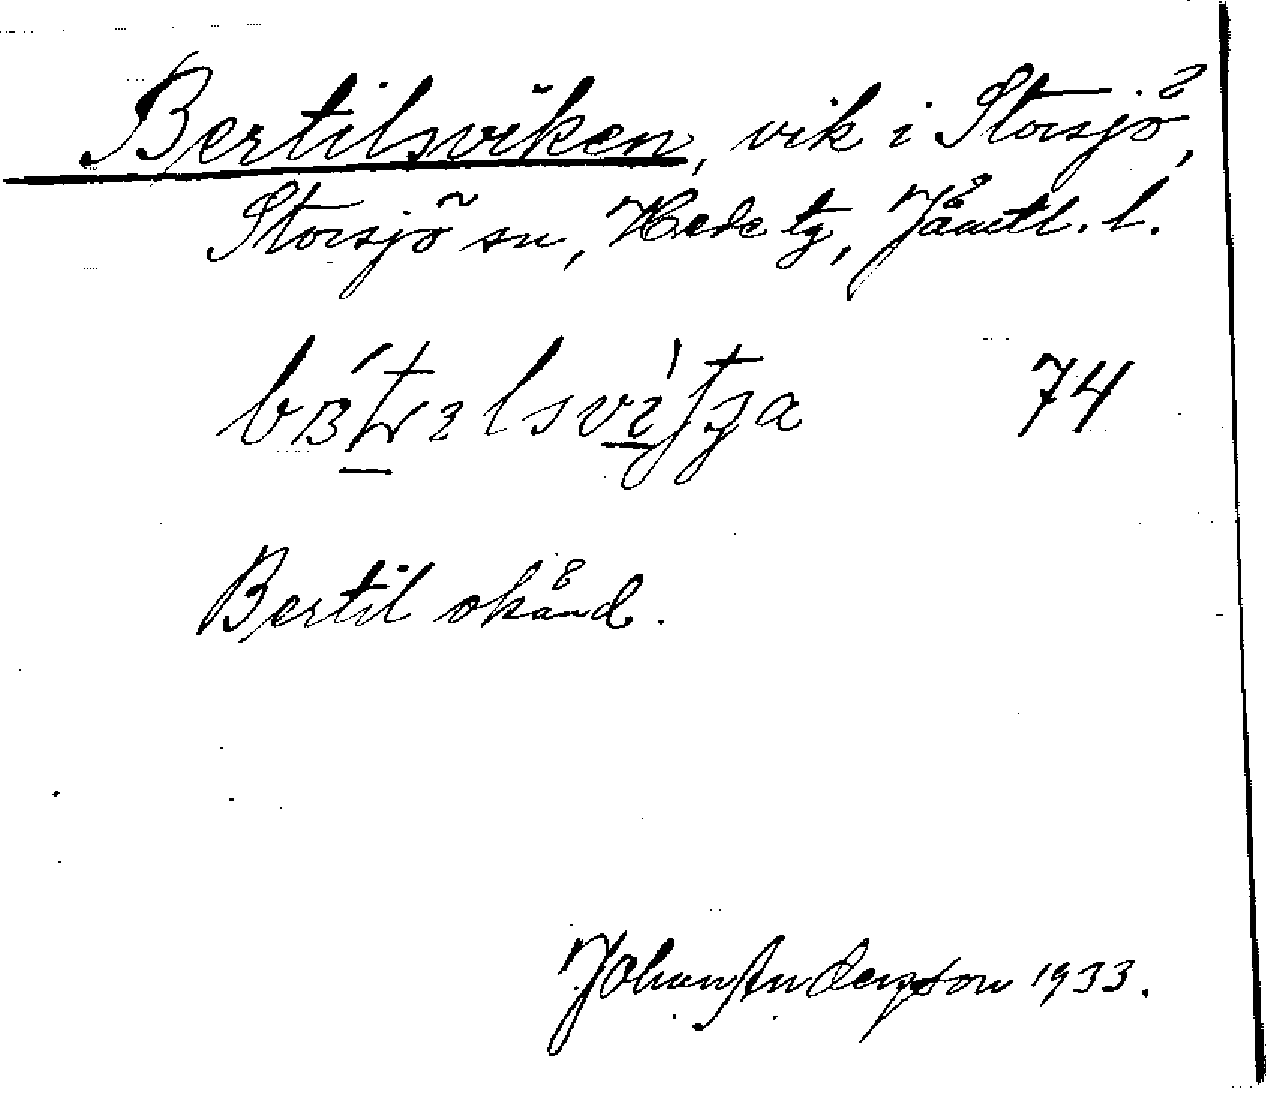 Bertilsviken, vik i Storsjö,
Storsjö sn, Hede tg, Jämtl. l.
74
Bertil okänd.
Johan Anderson 1933.